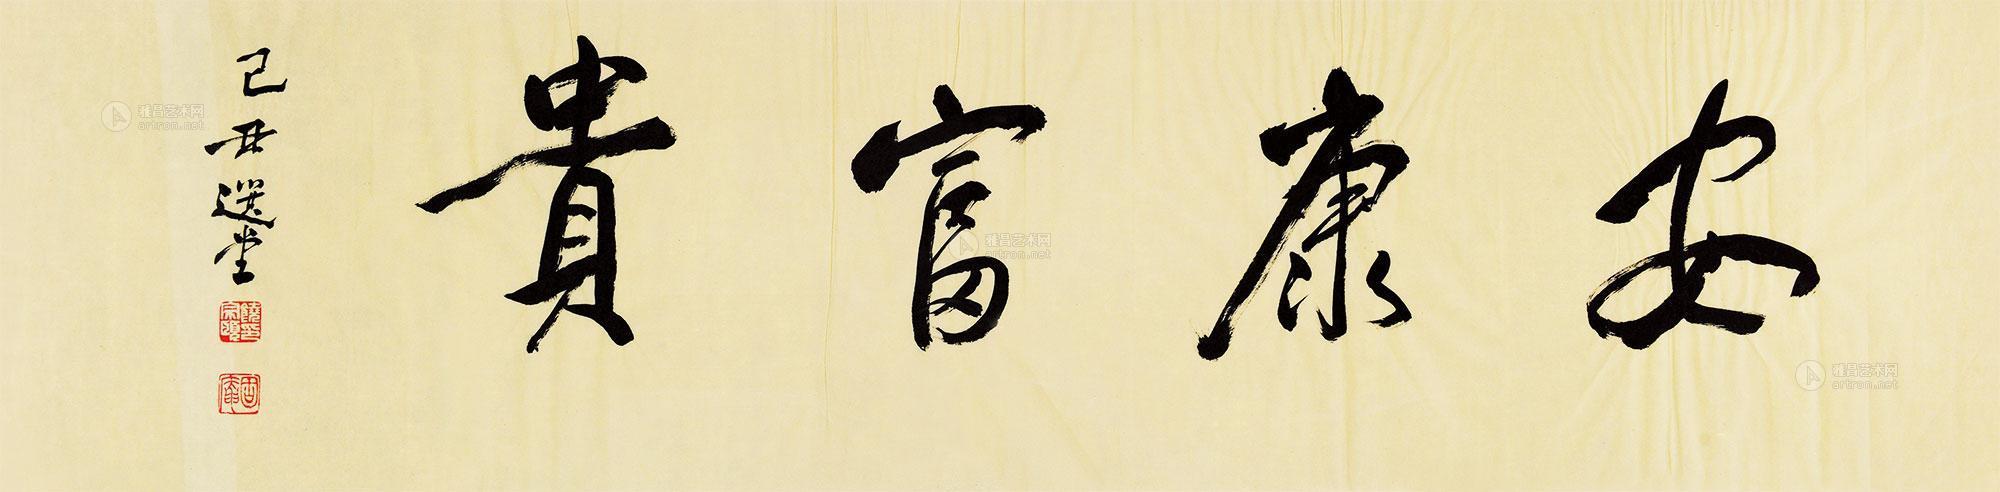 安康富貴
己丑選堂
饒宗頤印
雅昌艺术网
artron.net
雅昌艺术网
artron.net
雅昌艺术网
artron.net